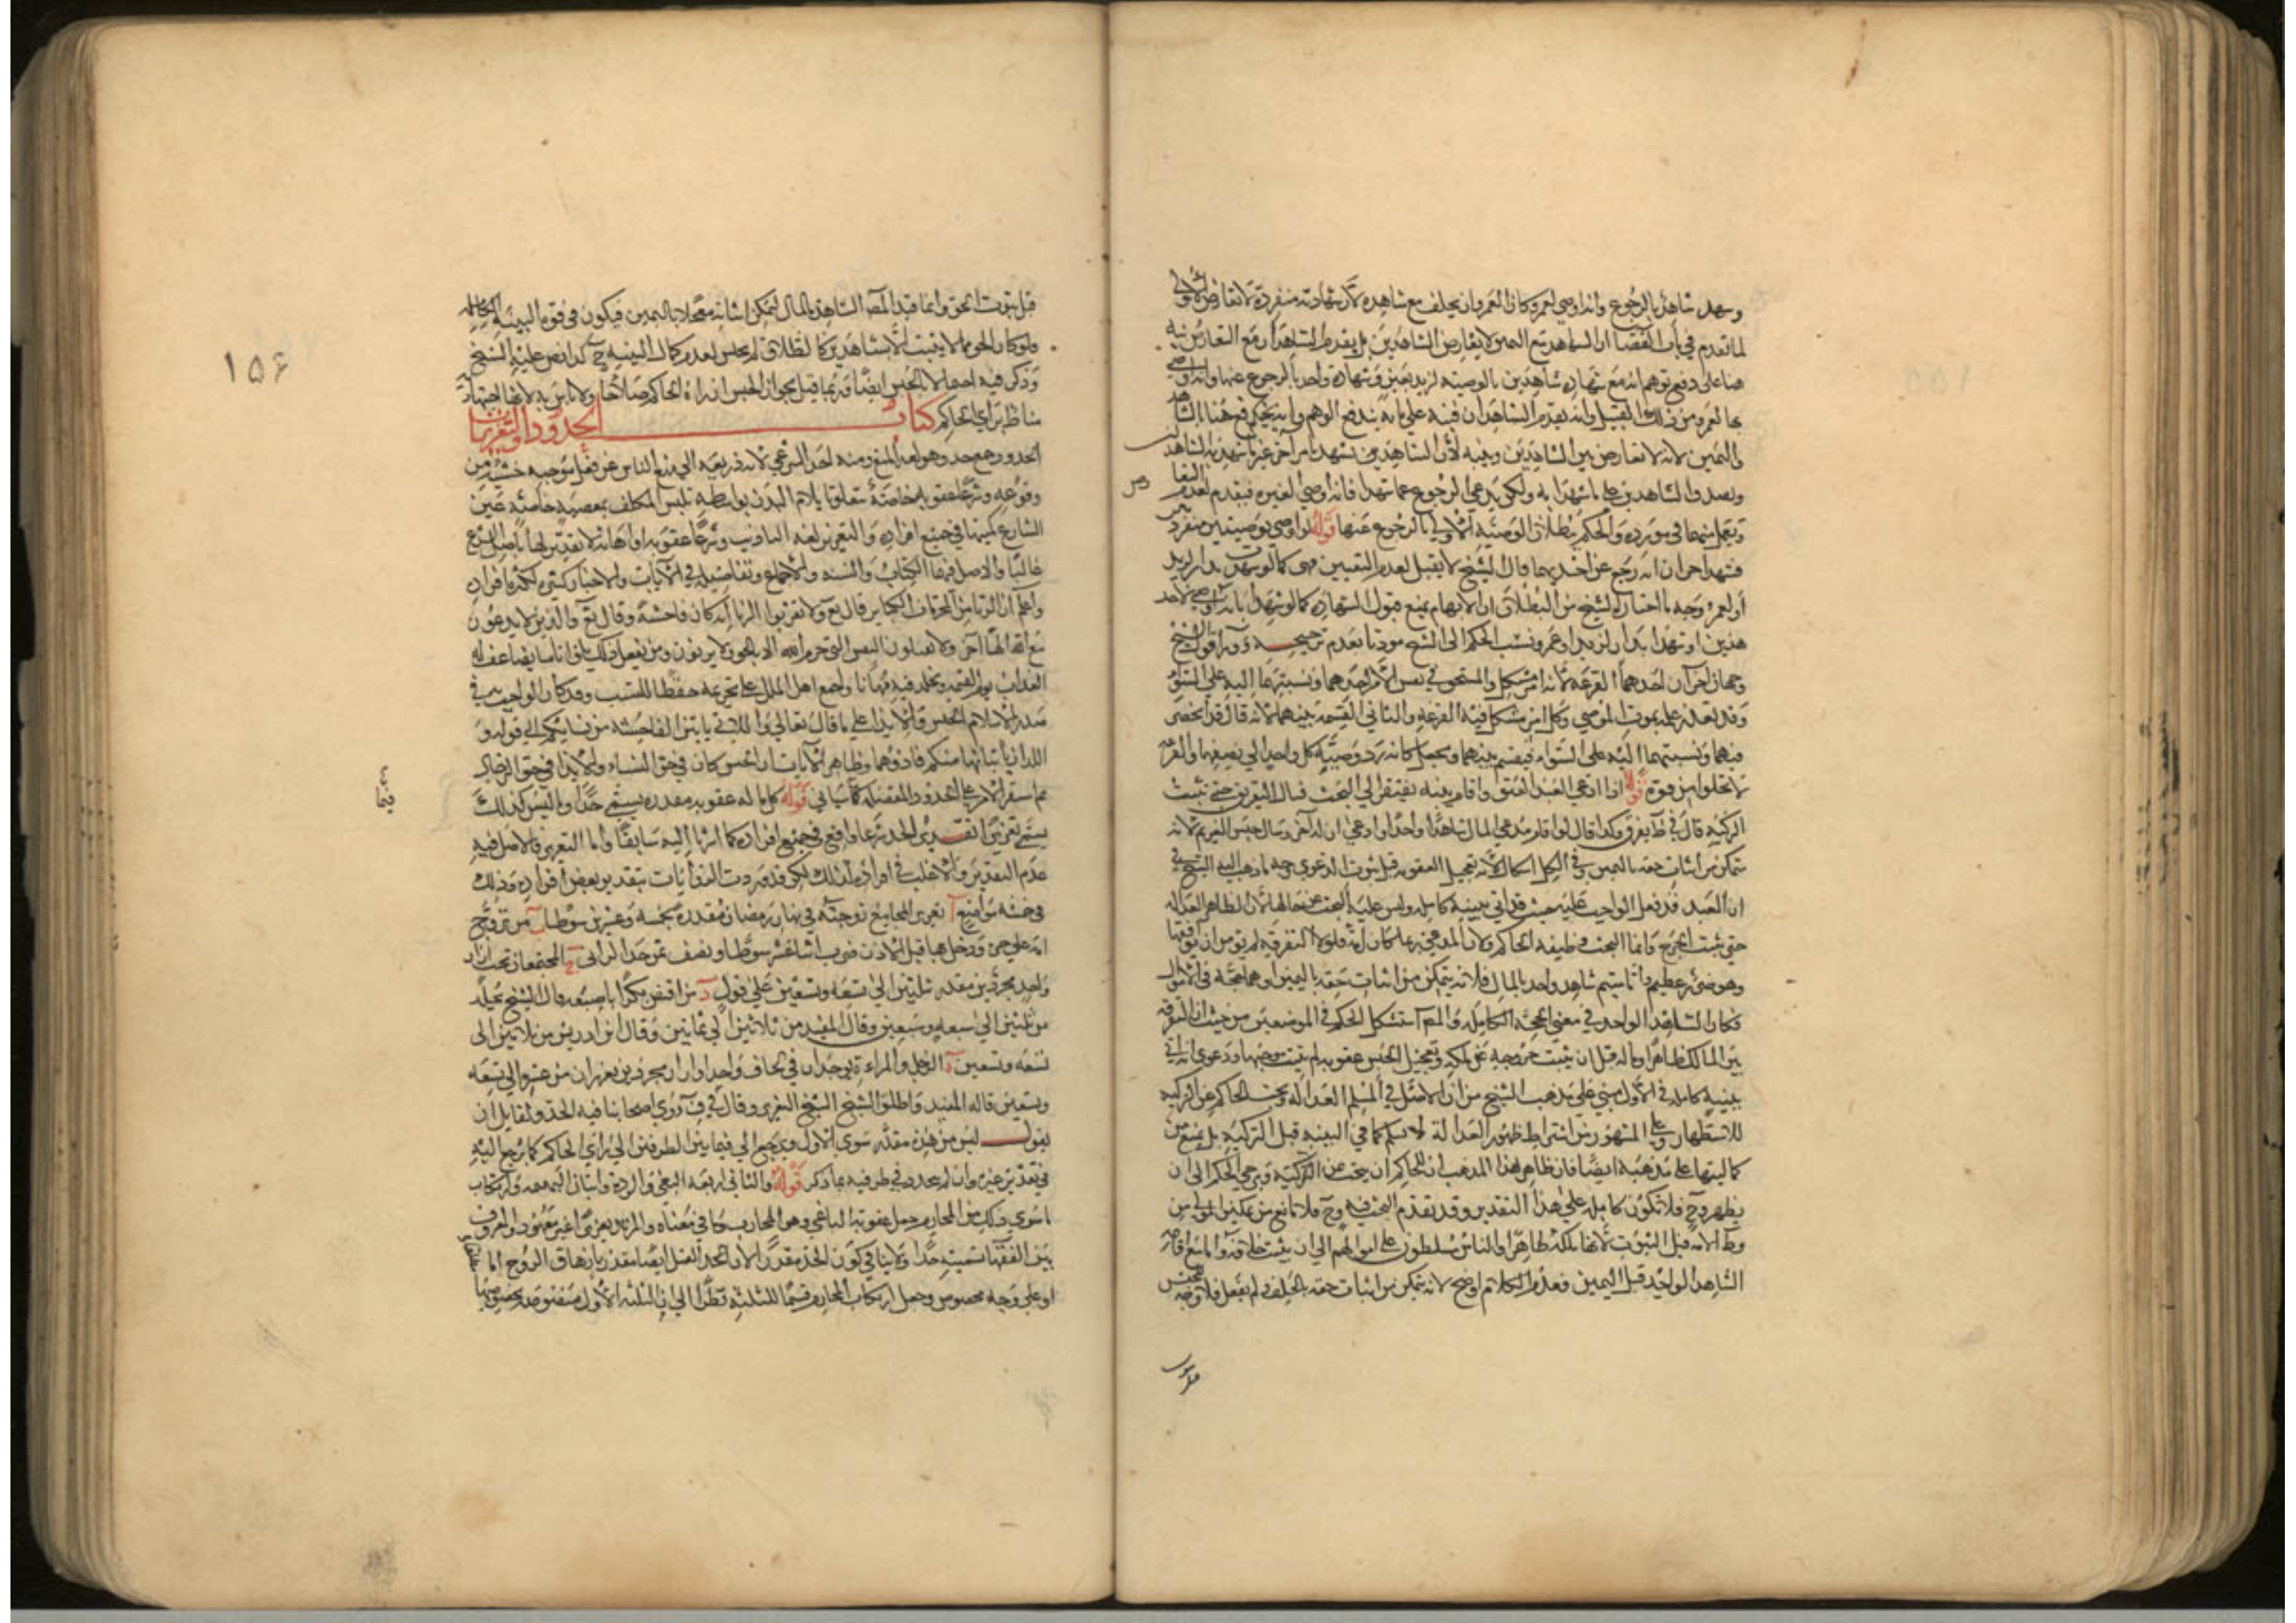 وشهد شاهد بالرجوع وانه اوصي لعمرو كان لعمرو ان يحلف مع شاهده لان شهادته منفردة لا تعارض الاولى
لما تقدم في باب القضا ان الشاهد مع اليمين لا يعارض الشاهدين بل يقدم الشاهدان مع التعارض نبه
هنا على دفع توهم انه مع شهادة شاهدين بالوصية لزيد بعين وشهادة واحد بالرجوع عنها وانه اوصى
بها لعمرو من ذلك القبيل وانه يقدم الشاهدان فنبه على ما به يندفع الوهم وانه يحكم هنا بالشاهد
واليمين لانه لا تعارض بين الشاهدين وبينه لان الشاهد بمن يشهد بامر آخر غير ما شهد به الشاهدان
ويصدق الشاهدين على ما شهدا به ولكن يدعي الرجوع عما شهدا فانه اوصى لغيره فيقدم لعدم التعا
رض
ويعمل بهما في مورده والحكم ببطلان الوصية الاولى بالرجوع عنها قوله لو اوصى بوصيتين منفردتين
فشهد اخران انه رجع عن احديهما قال الشيخ لا يقبل لعدم التعيين فهى كما لو شهدت بدار لزيد
او لعمرو وجه ما اختاره الشيخ من البطلان ان الابهام يمنع قبول الشهادة كما لو شهدا بانه اوصى لاحد
هذين او شهدا بدار لزيد او عمرو ونسب الحكم الى الشيخ موذنا بعدم ترجيحه ووراء قول الشيخ
وجهان آخران احدهما القرعة لانه امر مشكل والمستحق في نفس الامر احدهما ونسبتهما اليه على السواء
وقد تعذر علمه بموت الموصي وكل امر مشكل فيه القرعة والثاني القسمة بينهما لانه مال قد انحصر
فيهما ونسبتهما اليه على السواء فيقسم بينهما ويجعل كانه رد وصية كل واحد الي نصفها والقرعة
لا تخلوا من قوة قوله اذا ادعي العبد العتق واقام بينة تفتقر الي البحث فسال التفريق حتى تثبت
التزكية قال في ط يفرق وكذا قال لو اقام مدعي المال شاهدا واحدا وادعي ان له آخر وسال حبس الغريم لانه
متمكن من اثبات حقه باليمين وفي الكل اشكال لانه تعجيل العقوبة قبل ثبوت الدعوى وجه ما ذهب اليه الشيخ في
ان العبد قد فعل الواجب عليه حيث قد اتى ببينة كاملة وليس عليه البحث عن حالها لان الظاهر العدالة
حتى يثبت الجرح وانما البحث وظيفة الحاكم ولان المدعي ربما كان امة فلولا التفرقة لم يؤمن ان يواقعها
وهو ضرر عظيم واما مقيم شاهد واحد بالمال فلانه يتمكن من اثبات حقه باليمين وهما حجة في الاموال
فكان الشاهد الواحد في معنى الحجة الكاملة والمص استشكل الحكم في الموضعين من حيث ان التفرقة
بين المالك ظاهرا وماله قبل ان يثبت خروجه عن ملكه وتعجيل الحبس عقوبة لم يثبت موجبها ودعوى انه اتى
ببينة كاملة في الاول مبني على مذهب الشيخ من ان الاصل في المسلم العدالة وبحث الحاكم عن التزكية
للاستظهار وعلى المشهور من اشتراط ظهور العدالة لا يسلم كمال البينة قبل التزكية بل يمنع من
كماليتها على مذهبه ايضا فان ظاهر هذا المذهب ان للحاكم ان يبحث عن التزكية ويرجي الحكم الى ان
يظهر وح فلا تكون كاملة على هذا التقدير وقد تقدم البحث فيه وح فلا مانع من تمكين المولى من
وط الامة قبل الثبوت لانها ملكه ظاهرا والناس مسلطون على اموالهم الى ان يثبت خلافه واما مع اقامة
الشاهد الواحد قبل اليمين فعدم الكلام اوضح لانه يتمكن من اثبات حقه بالحلف ولم يفعل فلا وجه للحبس
قبل ثبوت الحق وانما قيد المص الشاهد بالمال ليمكن اثباته معجلا باليمين فيكون في قوة البينة الكاملة
فلو كان الحق مما لا يثبت الا بشاهدين كالطلاق لم يحبس لعدم كمال البينة ح كذا نص عليه الشيخ
وذكر فيه احتمالا بالحبس ايضا وربما قيل بجواز الحبس ان راه الحاكم صلاحا ولا باس به لانها اجتهادية
مناط براي الحاكم كتاب الحدود والتعزيرات
الحدود جمع حد وهو لغة المنع ومنه اخذ الشرعي لانه ذريعة الى منع الناس عن فعل موجبه خشية من
وقوعه وشرعا عقوبة خاصة تتعلق بايلام البدن بواسطة تلبس المكلف بمعصية خاصة عين
الشارع كميتها في جميع افراده والتعزير لغة التاديب وشرعا عقوبة او اهانة لا تقدير لها باصل الشرع
غالبا والاصل فيهما الكتاب والسنة والاجماع وتفاصيله في الآيات والاخبار كثيرة لكثرة افراده
واعلم ان الزنا من المحرمات الكباير قال تع ولا تقربوا الزنا انه كان فاحشة وقال تع والذين لا يدعون
مع الله الها آخر ولا يقتلون النفس التي حرم الله الا بالحق ولا يزنون ومن يفعل ذلك يلق اثاما يضاعف له
العذاب يوم القيمة ويخلد فيه مهانا واجمع اهل الملل على تحريمه حفظا للنسب وقد كان الواجب في
صدر الاسلام الحبس والايذا على ما قال تعالي واللاتي ياتين الفاحشة من نسائكم الى قوله و
اللذان ياتيانها منكم فاذوهما وظاهر الآيات ان الحبس كان في حق النساء والايذا في حق الرجال
ثم استقر الامر على الحدود المفصلة كما سياتي قوله كل ما له عقوبة مقدرة يسمى حدا وما ليس كذلك
يسمى تعزيرا تقدير الحد شرعا واقع في جميع افراده كما اشرنا اليه سابقا واما التعزير فالاصل فيه
عدم التقدير والاغلب في افراده كذلك لكن قد وردت الروايات بتقدير بعض افراده وذلك
في خمسة مواضع آ تعزير المجامع زوجته في نهار رمضان مقدر بخمسة وعشرين سوطا ب من تزوج
امة على حرة ودخل بها قبل الاذن ضرب اثنا عشر سوطا ونصف ثمن حد الزاني ج المجتمعان تحت ازار
واحد مجردين مقدر بثلثين الى تسعة وتسعين على قول د من افتض بكرا باصبعه قال الشيخ يجلد
من ثلثين الى سبعة وسبعين وقال المفيد من ثلاثين الى ثمانين وقال ابن ادريس من ثلاثين الى
تسعة وتسعين ه الرجل والمراة يوجدان في لحاف واحد او ازار مجردين يعزران من عشرة الى تسعة
وتسعين قاله المفيد واطلق الشيخ التعزير وقال في ف روى اصحابنا فيه الحد ولقايل ان
يقول ليس من هذه مقدر سوى الاول ويرجع الي فيما بين الطرفين الى راي الحاكم كما يرجع اليه
في تقدير غيره وان لم يحدد في طرفيه بما ذكر قوله والثاني اربعة البغي والردة واتيان البهيمة وارتكاب
ما سوى ذلك من المحارم جعل عقوبة الباغي وهو المحارب وما في معناه والمرتد تعزيرا غير معهود والمعروف
بين الفقهاء تسميته حدا ولا ينافي كون الحد مقدرا لان الحد القتل ايضا مقدر بازهاق الروح اما
او على وجه مخصوص وجعل ارتكاب المحارم قسيما للثلثة نظرا الى ان الثلثة الاول منصوصة بخصوصها
فيما
۱۵۶